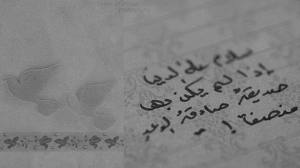 سلام على الدنيا
إذا لم يكن بها
صديقٌ صادقُ الوعد
منصفا !